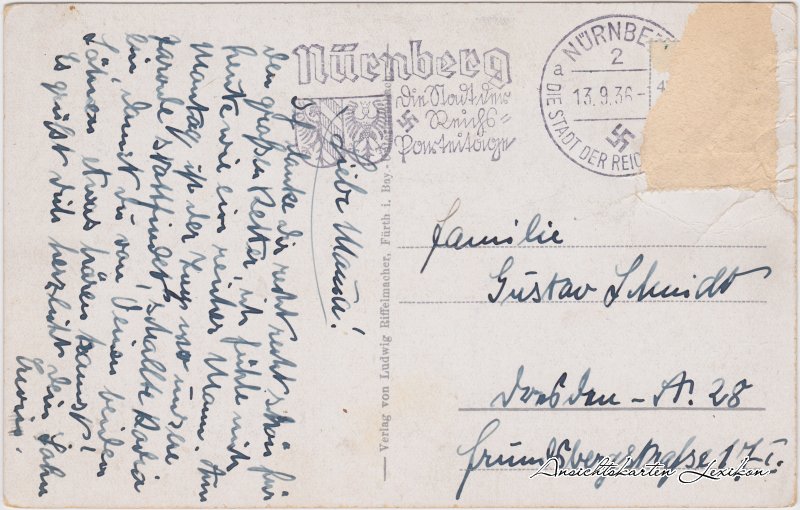 Nürnberg
Die Stadt der
Reichs=
Parteitage
NÜRNBER
2
a
13.9.36-
4
DIE STADT DER REIC
Liebe Mama!
Ich danke dir recht recht schön für
den großen Retter, ich fühle mich
heute wie ein reicher Mann. Am
Montag ist der Zug wo unsere
Parade stattfindet, schalte Radio
ein, damit du von Deinen beiden
Söhnen etwas hören kannst!
Es grüßt dich herzlichst dein Sohn
Erwin.
Verlag von Ludwig Riffelmacher, Fürth i. Bay.
Familie
Gustav Schmidt
Dresden - A. 28
straße 17 I.
Ansichtskarten Lexikon